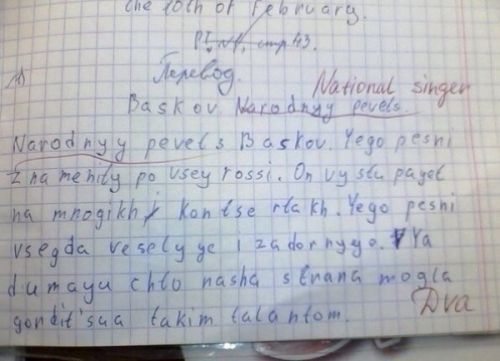 the 10th of February.
P.I, №1, стр 43.
1)
Перевод.
National singer
Baskov. Narodnyy pevets.
Narodnyy pevets Baskov. Yego pesni
znamenity po vsey rossi. On vystupayet
na mnogikh kontsertakh. Yego pesni
vsegda veselyye i zadornyye. Ya
dumayu chto nasha strana mogla
gordit'sua takim talantom.
Dva